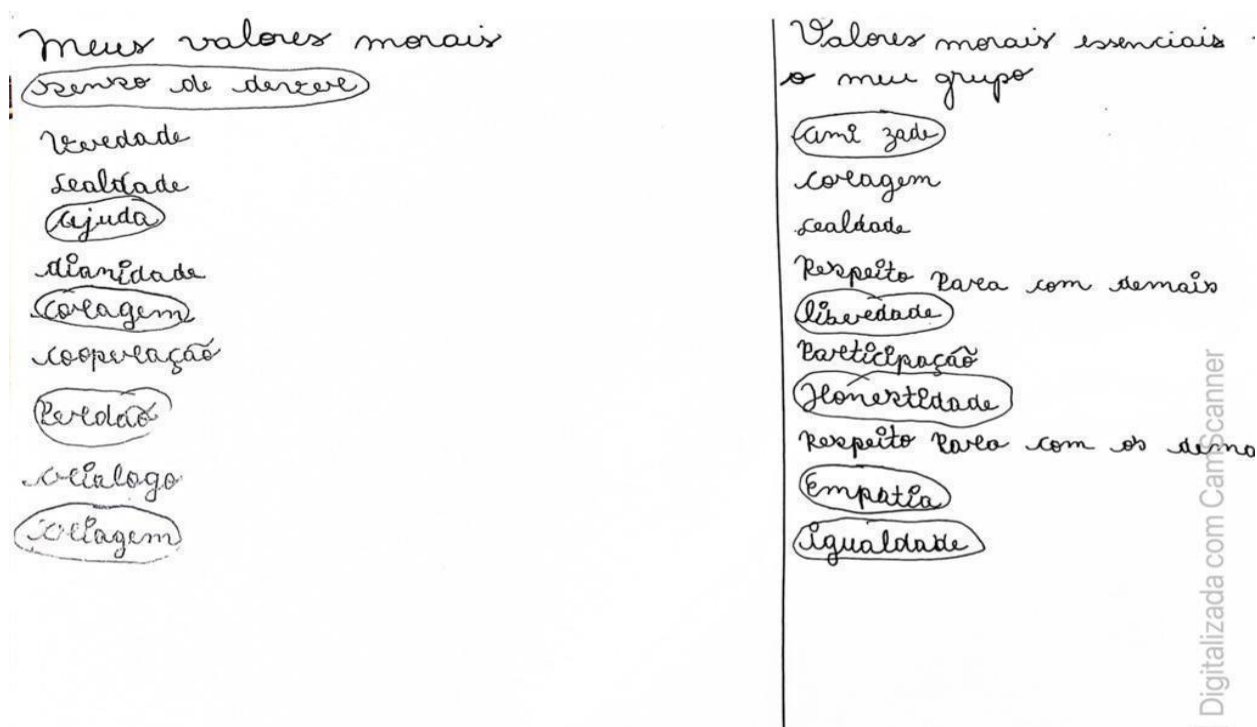 Meus valores morais
senso de dever
Verdade
Lealdade
ajuda
dianidade
coragem
cooperação
Perdão
Valores morais essenciais
o meu grupo
ami zade
coragem
Lealdade
Respeito Para com demais
liberdade
Participação
Honestidade
Respeito Para com os dema
Empatia
igualdade
Digitalizada com CamScanner